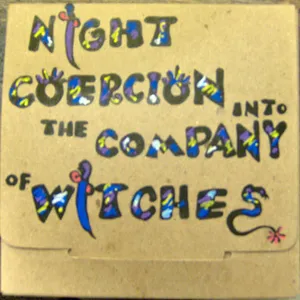 NIGHT
COERCION INTO
THE COMPANY
OF WITCHES